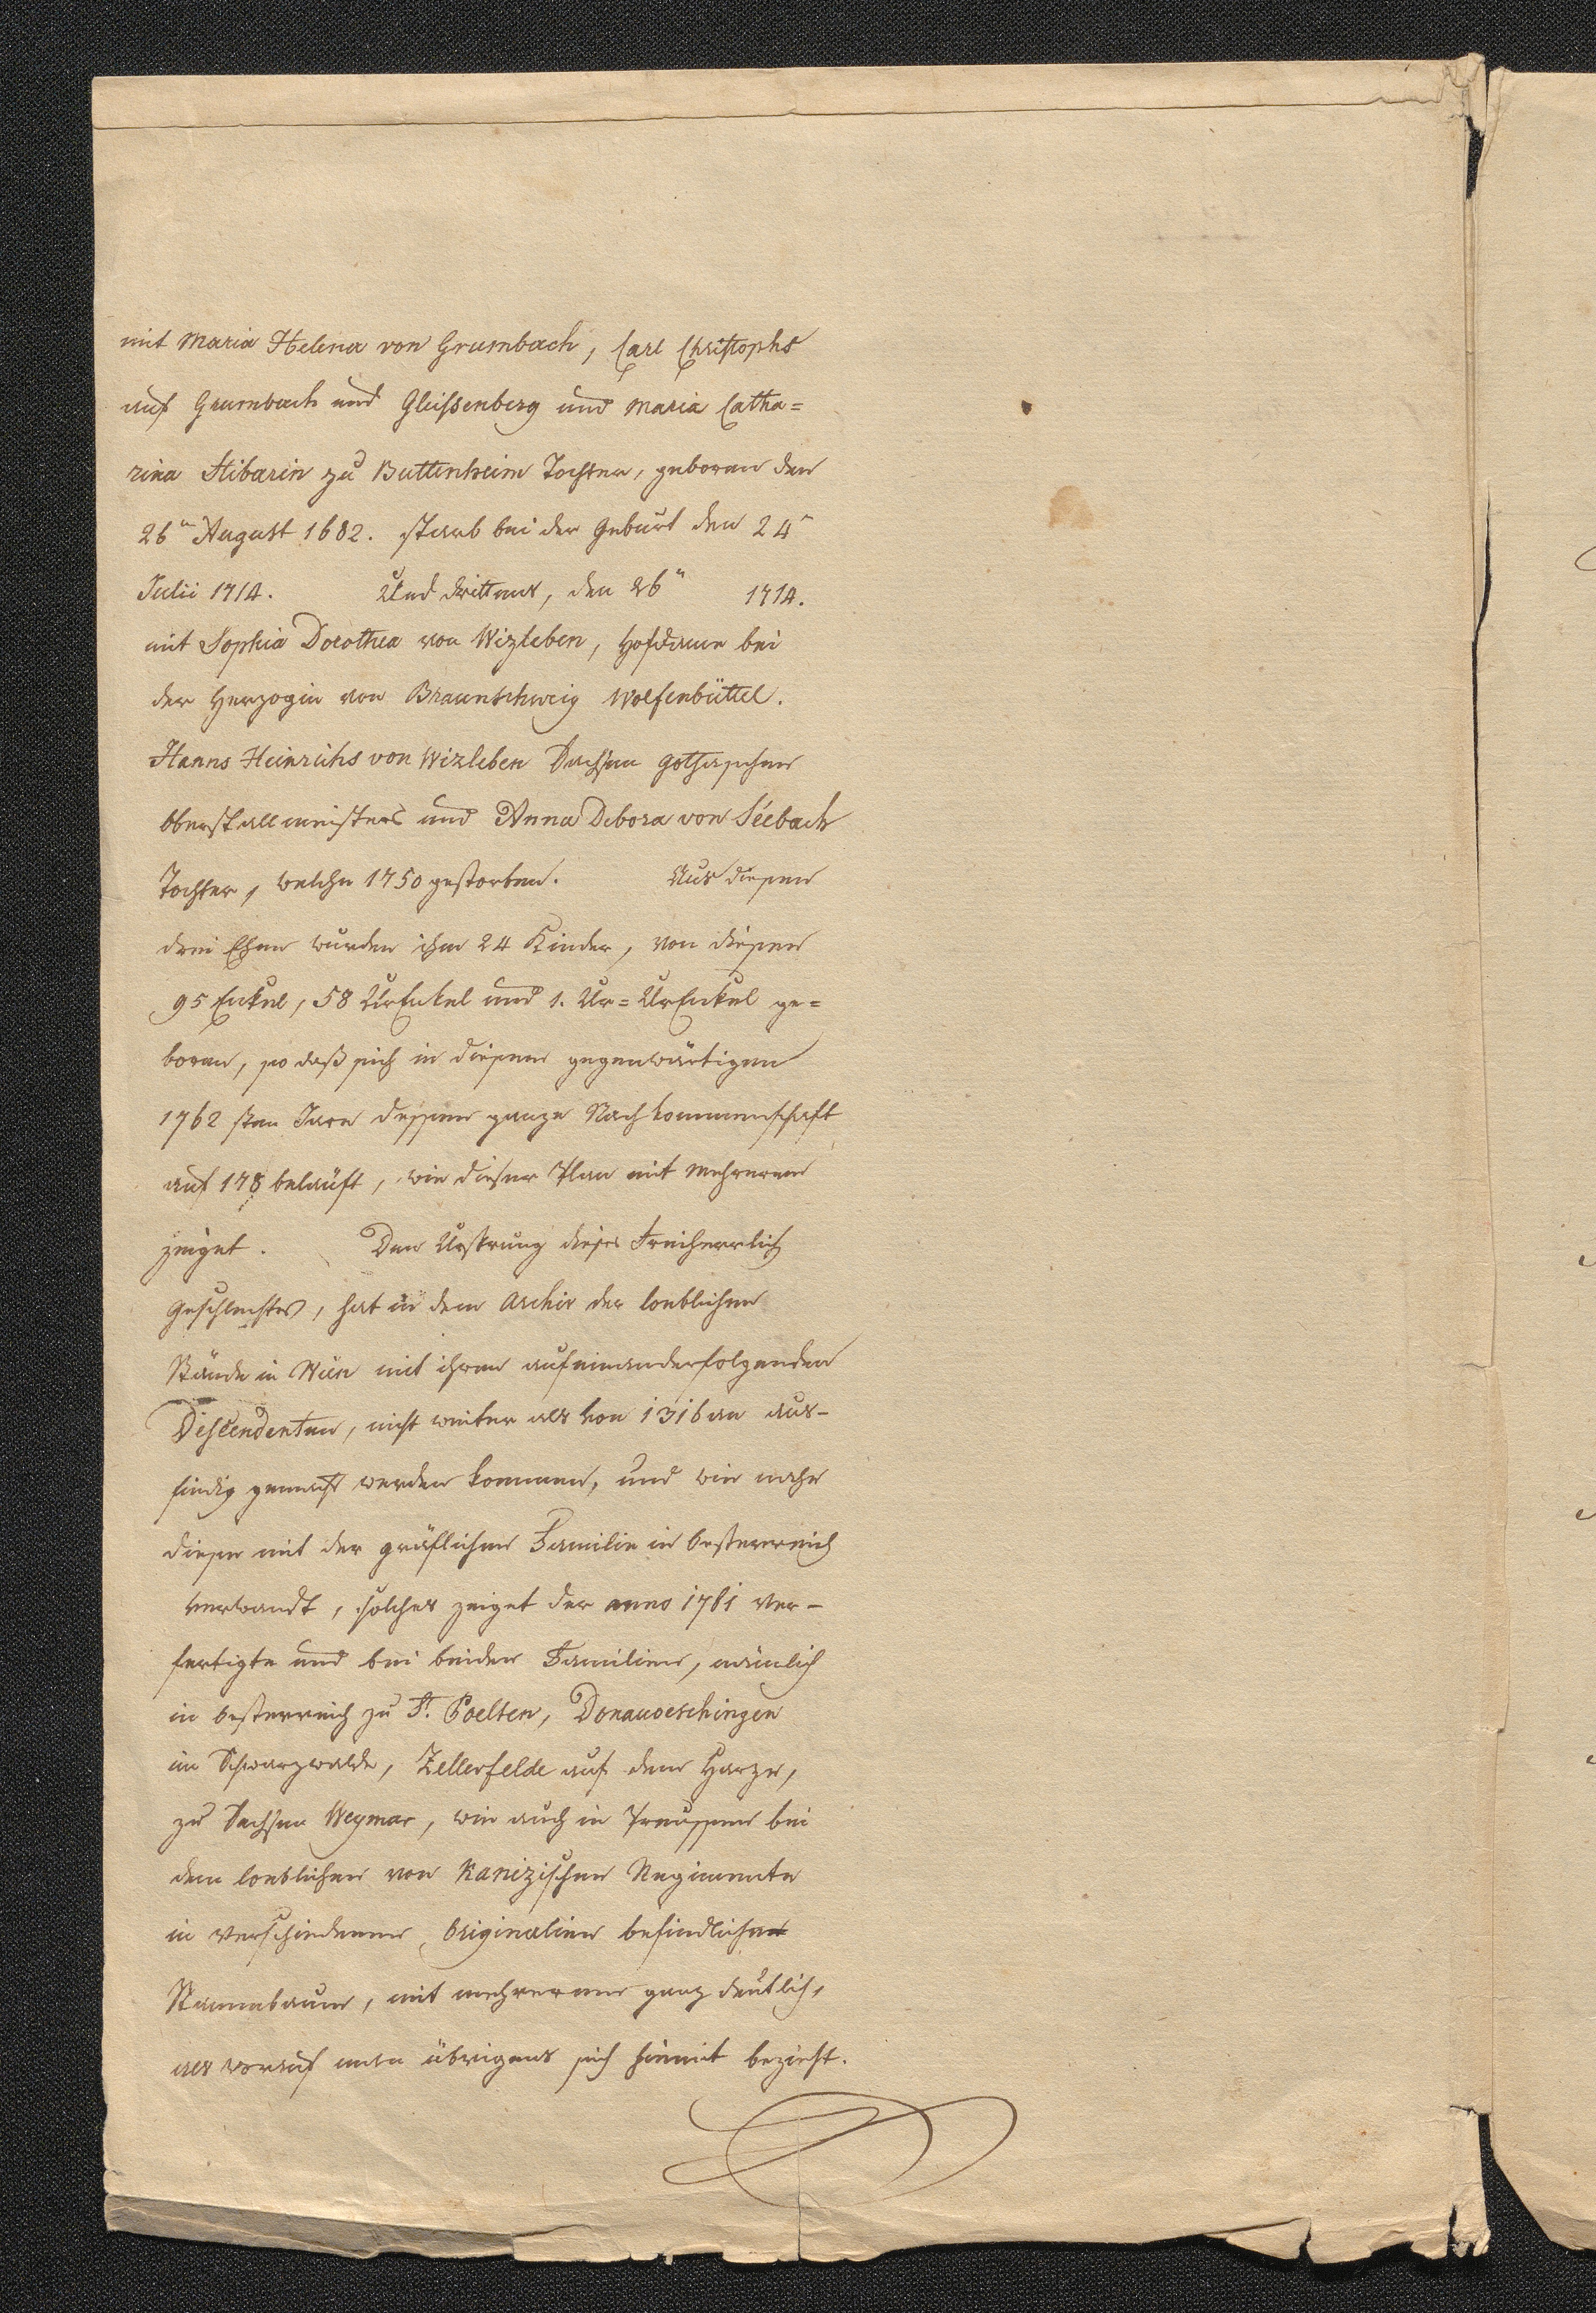 mit Maria Helena von Grumbach, Carl Christophs
auf Grumbach und Gleißenberg und Maria Catha=
rina Stibarin zu Buttenheim Tochter, geboren den
26n August 1682. starb bei der Geburt den 24n
Julii 1714. Und drittens, den 26n 1714.
mit Sophia Dorothea von Wizleben, Hofdame bei
der Herzogin von Braunschweig Wolfenbüttel.
Hanns Heinrichs von Wizleben Sachsen Gothaischen
Oberstallmeisters und Anna Debora von Séebach
Tochter, welche 1750 gestorben. Aus diesen
drei Ehen wurden ihm 24 Kinder, von diesen
95 Enkel, 58 UrEnkel und 1. Ur=UrEnkel ge=
boren, so daß sich in diesem gegenwärtigen
1762 sten Jare dessen ganze Nachkommenschaft
auf 178 beläuft, wie dieser Plan mit mehrerem
zeiget. Den Ursprung dieses Freiherrlich
Geschlechtes, hat in dem Archiv der loeblichen
Stände in Wien mit ihren aufeinanderfolgenden
Descendenten, nicht weiter als von 1316 an aus-
findig gemacht werden koennen, und wie nahe
diese mit der gräflichen Familie in Oesterreich
verwandt, solches zeiget der anno 1761 ver-
fertigte und bei beiden Familien, nämlich
in Oesterreich zu St. Poelten, Donauoeschingen
im Schwarzwalde, Zellerfelde auf dem Harze,
zu Sachsen Weymar, wie auch in Preussen bei
dem loeblichen von Kanizischen Regimente
in verschiedenen Originalien befindlichen
Stammbaum, mit mehrerem ganz deutlich,
als worauf man übrigens sich hiemit bezieht.